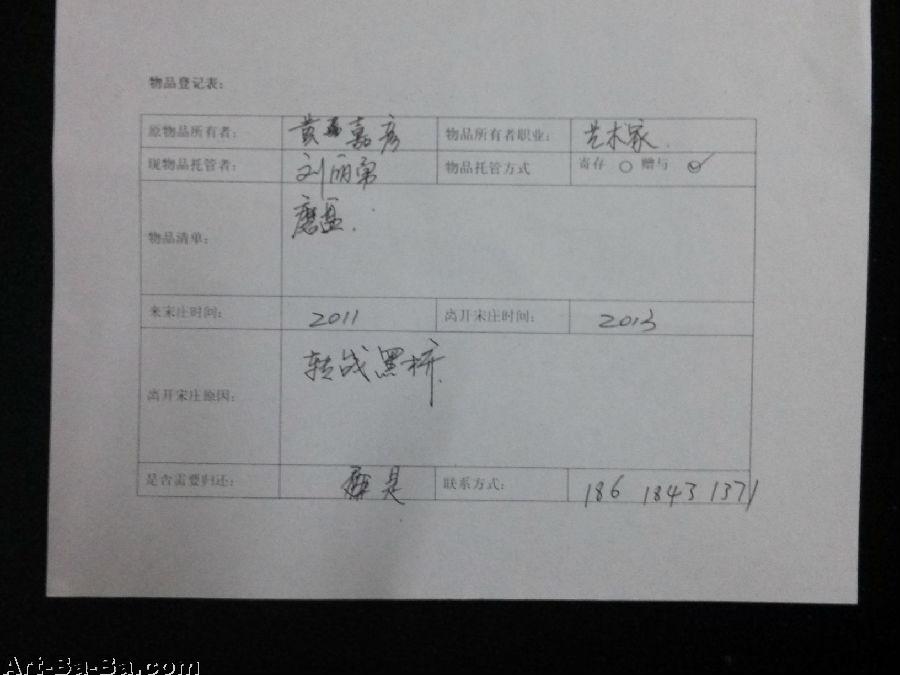 物品登记表：
原物品所有者： 黄嘉彦 物品所有者职业： 艺术家.
现物品托管者： 刘丽勇 物品托管方式 寄存 ○ 赠与 ○✓
物品清单： 磨盘.
来宋庄时间： 2011 离开宋庄时间： 2013
离开宋庄原因： 转战黑桥.
是否需要归还： 是 联系方式： 186 1843 1371
Art-Ba-Ba.com